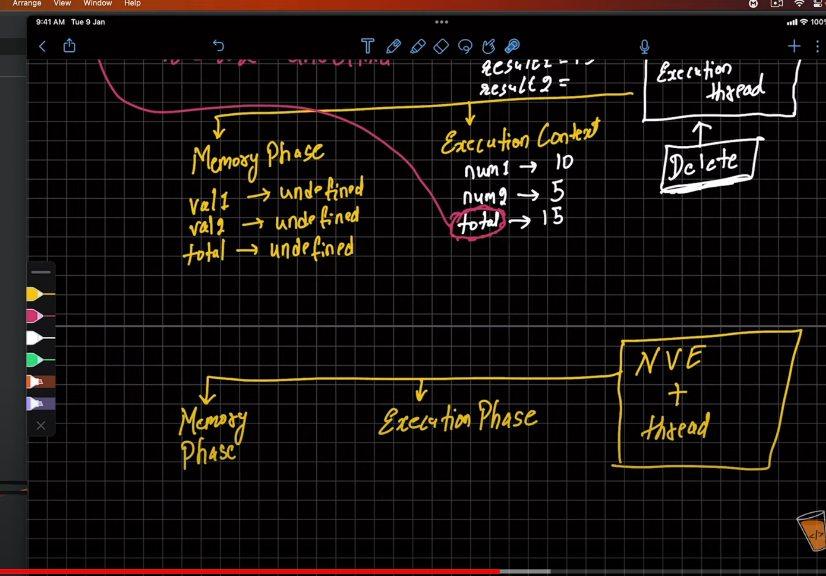 Arrange View Window Help
9:41 AM Tue 9 Jan
100%
result2 =
Execution
thread
Memory Phase
val1 → undefined
val2 → undefined
total → undefined
Execution Context
num1 → 10
num2 → 5
total → 15
Delete
Memory
Phase
Execution Phase
NVE
+
thread